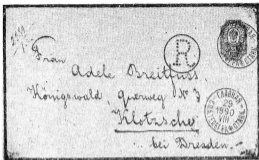 R
Frau
Adele Breitfuss
Königswald, Querweg No 3
Klotzsche
bei Dresden.
29
1890